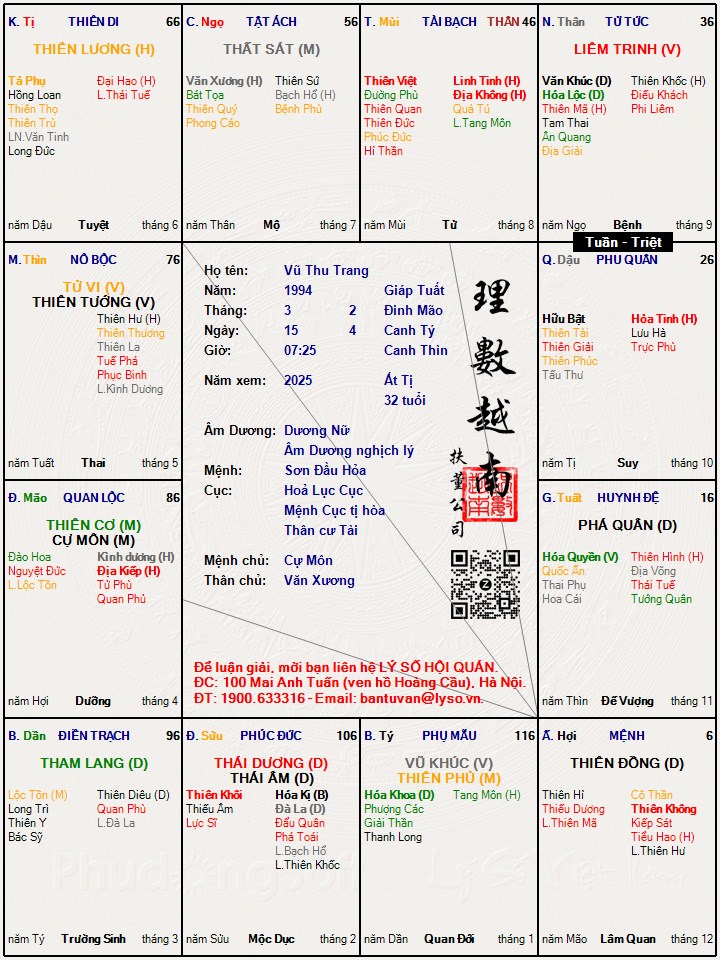 K. Tị THIÊN DI 66
THIÊN LƯƠNG (H)
Tả Phụ
Hồng Loan
Thiên Thọ
Thiên Trù
LN.Văn Tinh
Long Đức
Đại Hao (H)
L.Thái Tuế
năm Dậu Tuyệt tháng 6
C. Ngọ TẬT ÁCH 56
THẤT SÁT (M)
Văn Xương (H)
Bát Tọa
Thiên Quý
Phong Cáo
Thiên Sứ
Bạch Hổ (H)
Bệnh Phù
năm Thân Mộ tháng 7
T. Mùi TÀI BẠCH THÂN 46
Thiên Việt
Đường Phù
Thiên Quan
Thiên Đức
Phúc Đức
Hỉ Thần
Linh Tinh (H)
Địa Không (H)
Quả Tú
L.Tang Môn
năm Mùi Tử tháng 8
N. Thân TỬ TỨC 36
LIÊM TRINH (V)
Văn Khúc (D)
Hóa Lộc (D)
Thiên Mã (H)
Tam Thai
Ân Quang
Địa Giải
Thiên Khốc (H)
Điếu Khách
Phi Liêm
năm Ngọ Bệnh tháng 9
Tuần - Triệt
M. Thìn NÔ BỘC 76
TỬ VI (V)
THIÊN TƯỚNG (V)
Thiên Hư (H)
Thiên Thương
Thiên La
Tuế Phá
Phục Binh
L.Kình Dương
năm Tuất Thai tháng 5
Họ tên: Vũ Thu Trang
Năm: 1994 Giáp Tuất
Tháng: 3 2 Đinh Mão
Ngày: 15 4 Canh Tý
Giờ: 07:25 Canh Thìn
Năm xem: 2025 Ất Tị
32 tuổi
Âm Dương: Dương Nữ
Âm Dương nghịch lý
Mệnh: Sơn Đầu Hỏa
Cục: Hoả Lục Cục
Mệnh Cục tị hòa
Thân cư Tài
Mệnh chủ: Cự Môn
Thân chủ: Văn Xương
理數越南
扶董公司
Để luận giải, mời bạn liên hệ LÝ SỐ HỘI QUÁN.
ĐC: 100 Mai Anh Tuấn (ven hồ Hoàng Cầu), Hà Nội.
ĐT: 1900.633316 - Email: bantuvan@lyso.vn.
Q. Dậu PHU QUÂN 26
Hữu Bật
Thiên Tài
Thiên Giải
Thiên Phúc
Tấu Thư
Hỏa Tinh (H)
Lưu Hà
Trực Phù
năm Tị Suy tháng 10
Đ. Mão QUAN LỘC 86
THIÊN CƠ (M)
CỰ MÔN (M)
Đào Hoa
Nguyệt Đức
L.Lộc Tồn
Kình dương (H)
Địa Kiếp (H)
Tử Phù
Quan Phủ
năm Hợi Dưỡng tháng 4
G. Tuất HUYNH ĐỆ 16
PHÁ QUÂN (D)
Hóa Quyền (V)
Quốc Ấn
Thai Phụ
Hoa Cái
Thiên Hình (H)
Địa Võng
Thái Tuế
Tướng Quân
năm Thìn Đế Vượng tháng 11
B. Dần ĐIỀN TRẠCH 96
THAM LANG (D)
Lộc Tồn (M)
Long Trì
Thiên Y
Bác Sỹ
Thiên Diêu (D)
Quan Phù
L.Đà La
năm Tý Trường Sinh tháng 3
Đ. Sửu PHÚC ĐỨC 106
THÁI DƯƠNG (D)
THÁI ÂM (D)
Thiên Khôi
Thiếu Âm
Lực Sĩ
Hóa Kị (B)
Đà La (D)
Đẩu Quân
Phá Toái
L.Bạch Hổ
L.Thiên Khốc
năm Sửu Mộc Dục tháng 2
B. Tý PHỤ MẪU 116
VŨ KHÚC (V)
THIÊN PHỦ (M)
Hóa Khoa (D)
Phượng Các
Giải Thần
Thanh Long
Tang Môn (H)
năm Dần Quan Đới tháng 1
Ấ. Hợi MỆNH 6
THIÊN ĐỒNG (D)
Thiên Hỉ
Thiếu Dương
L.Thiên Mã
Cô Thần
Thiên Không
Kiếp Sát
Tiểu Hao (H)
L.Thiên Hư
năm Mão Lâm Quan tháng 12